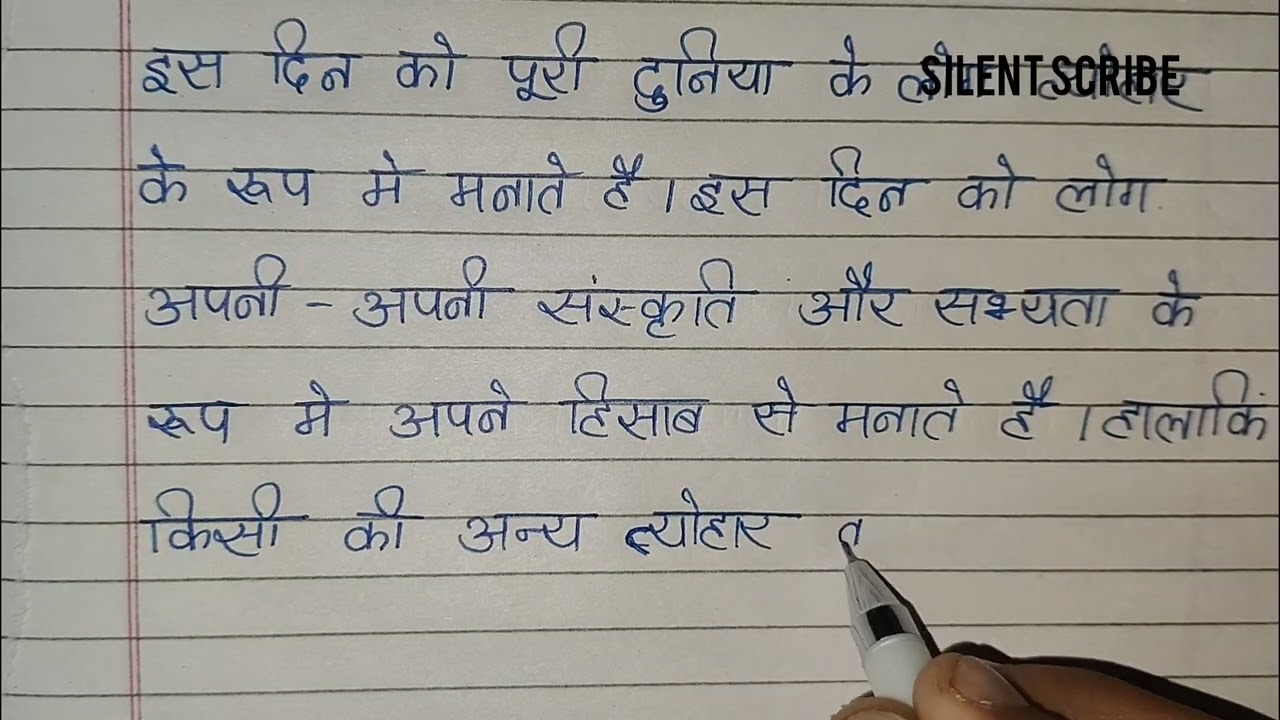 इस दिन को पूरी दुनिया के SILENT SCRIBE
के रूप मे मनाते है । इस दिन को लोग
अपनी - अपनी संस्कृति और सभ्यता के
रूप मे अपने हिसाब से मनाते है । हालाकिं
किसी की अन्य त्योहार त